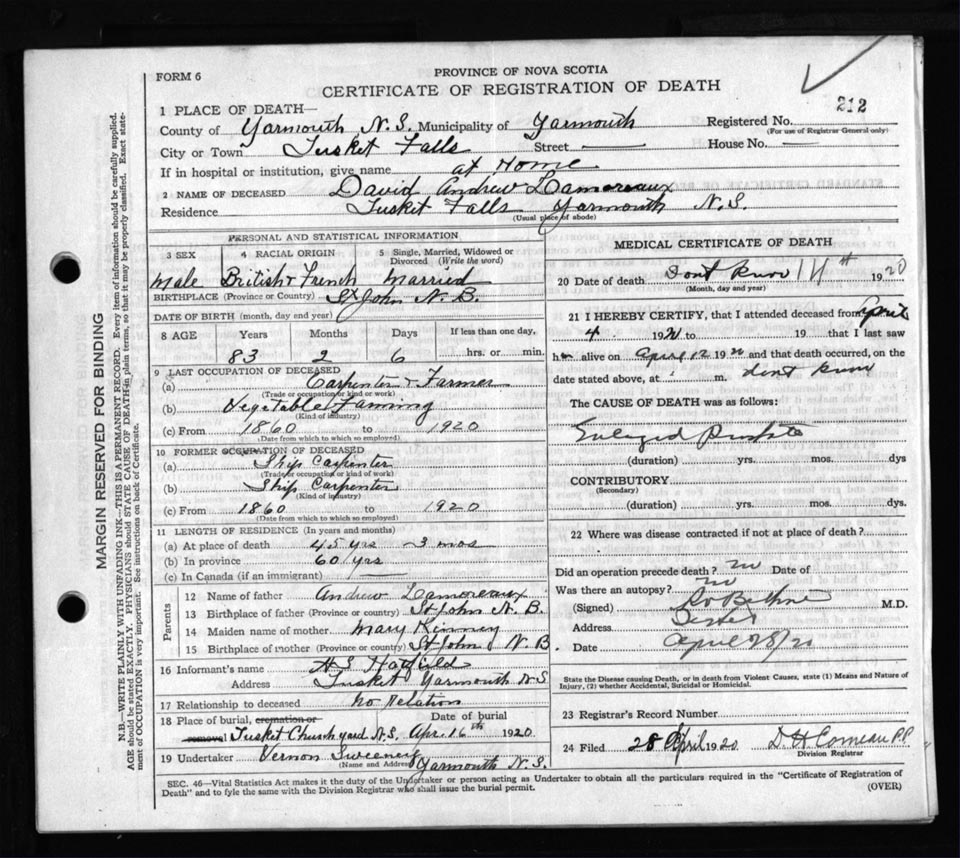 FORM 6
PROVINCE OF NOVA SCOTIA
CERTIFICATE OF REGISTRATION OF DEATH
212
1 PLACE OF DEATH—
County of Yarmouth N.S. Municipality of Yarmouth Registered No.
(For use of Registrar General only)
City or Town Tusket Falls Street — House No. —
If in hospital or institution, give name at Home
2 NAME OF DECEASED David Andrew Lamoreaux
Residence Tusket Falls Yarmouth N.S.
(Usual place of abode)
PERSONAL AND STATISTICAL INFORMATION
3 SEX 4 RACIAL ORIGIN 5 Single, Married, Widowed or Divorced (Write the word)
Male British & French Married
BIRTHPLACE (Province or Country) St John N.B.
DATE OF BIRTH (month, day and year)
8 AGE Years Months Days If less than one day,
83 2 6 hrs. or min.
9 LAST OCCUPATION OF DECEASED
(a) Carpenter & Farmer
(Trade or occupation or kind of work)
(b) Vegetable Farming
(Kind of industry)
(c) From 1860 to 1920
(Date from which to which so employed)
10 FORMER OCCUPATION OF DECEASED
(a) Ship Carpenter
(Trade or occupation or kind of work)
(b) Ship Carpenter
(Kind of industry)
(c) From 1860 to 1920
(Date from which to which so employed)
11 LENGTH OF RESIDENCE (In years and months)
(a) At place of death 45 yrs 3 mos
(b) In province 60 yrs
(c) In Canada (if an immigrant) —
Parents
12 Name of father Andrew Lamoreaux
13 Birthplace of father (Province or country) St John N.B.
14 Maiden name of mother Mary Kinney
15 Birthplace of mother (Province or country) St John N.B.
16 Informant's name H S Hatfield
Address Tusket Yarmouth N.S
17 Relationship to deceased No Relation
18 Place of burial, cremation or removal Date of burial
Tusket Churchyard N.S. Apr. 16th 1920
19 Undertaker Vernon Sweeney
(Name and Address) Yarmouth N.S.
MEDICAL CERTIFICATE OF DEATH
20 Date of death Dont know 14th 1920
(Month, day and year)
21 I HEREBY CERTIFY, that I attended deceased from April
4 1920 to 19 that I last saw
him alive on April 12 1920 and that death occurred, on the
date stated above, at m. dont know
The CAUSE OF DEATH was as follows:
Enlarged Prostate
(duration) yrs. mos. dys
CONTRIBUTORY
(Secondary)
(duration) yrs. mos. dys.
22 Where was disease contracted if not at place of death?
Did an operation precede death? no Date of
Was there an autopsy? no
(Signed) M.D.
Address
Date April 28/20
State the Disease causing Death, or in death from Violent Causes, state (1) Means and Nature of
Injury, (2) whether Accidental, Suicidal or Homicidal.
23 Registrar's Record Number
24 Filed 28 April 1920 D H Comeau P.P.
Division Registrar
SEC. 46—Vital Statistics Act makes it the duty of the Undertaker or person acting as Undertaker to obtain all the particulars required in the "Certificate of Registration of
Death" and to fyle the same with the Division Registrar who shall issue the burial permit.
(OVER)
MARGIN RESERVED FOR BINDING
N.B.—WRITE PLAINLY WITH UNFADING INK—THIS IS A PERMANENT RECORD. Every item of information should be carefully supplied.
AGE should be stated EXACTLY. PHYSICIANS should STATE CAUSE OF DEATH in plain terms, so that it may be properly classified. Exact statement of OCCUPATION is very important. See instructions on back of Certificate.